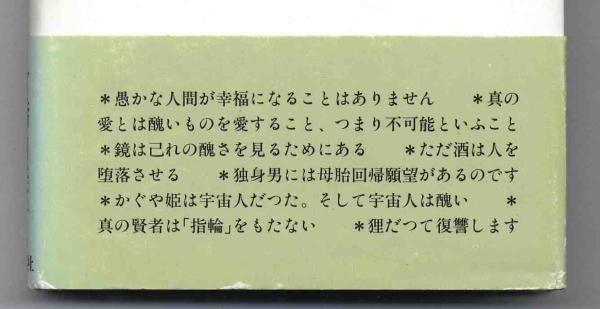 ＊愚かな人間が幸福になることはありません　＊真の
愛とは醜いものを愛すること、つまり不可能といふこと
＊鏡は己れの醜さを見るためにある　＊ただ酒は人を
堕落させる　＊独身男には母胎回帰願望があるのです
＊かぐや姫は宇宙人だつた。そして宇宙人は醜い　＊
真の賢者は「指輪」をもたない　＊狸だつて復讐します
社